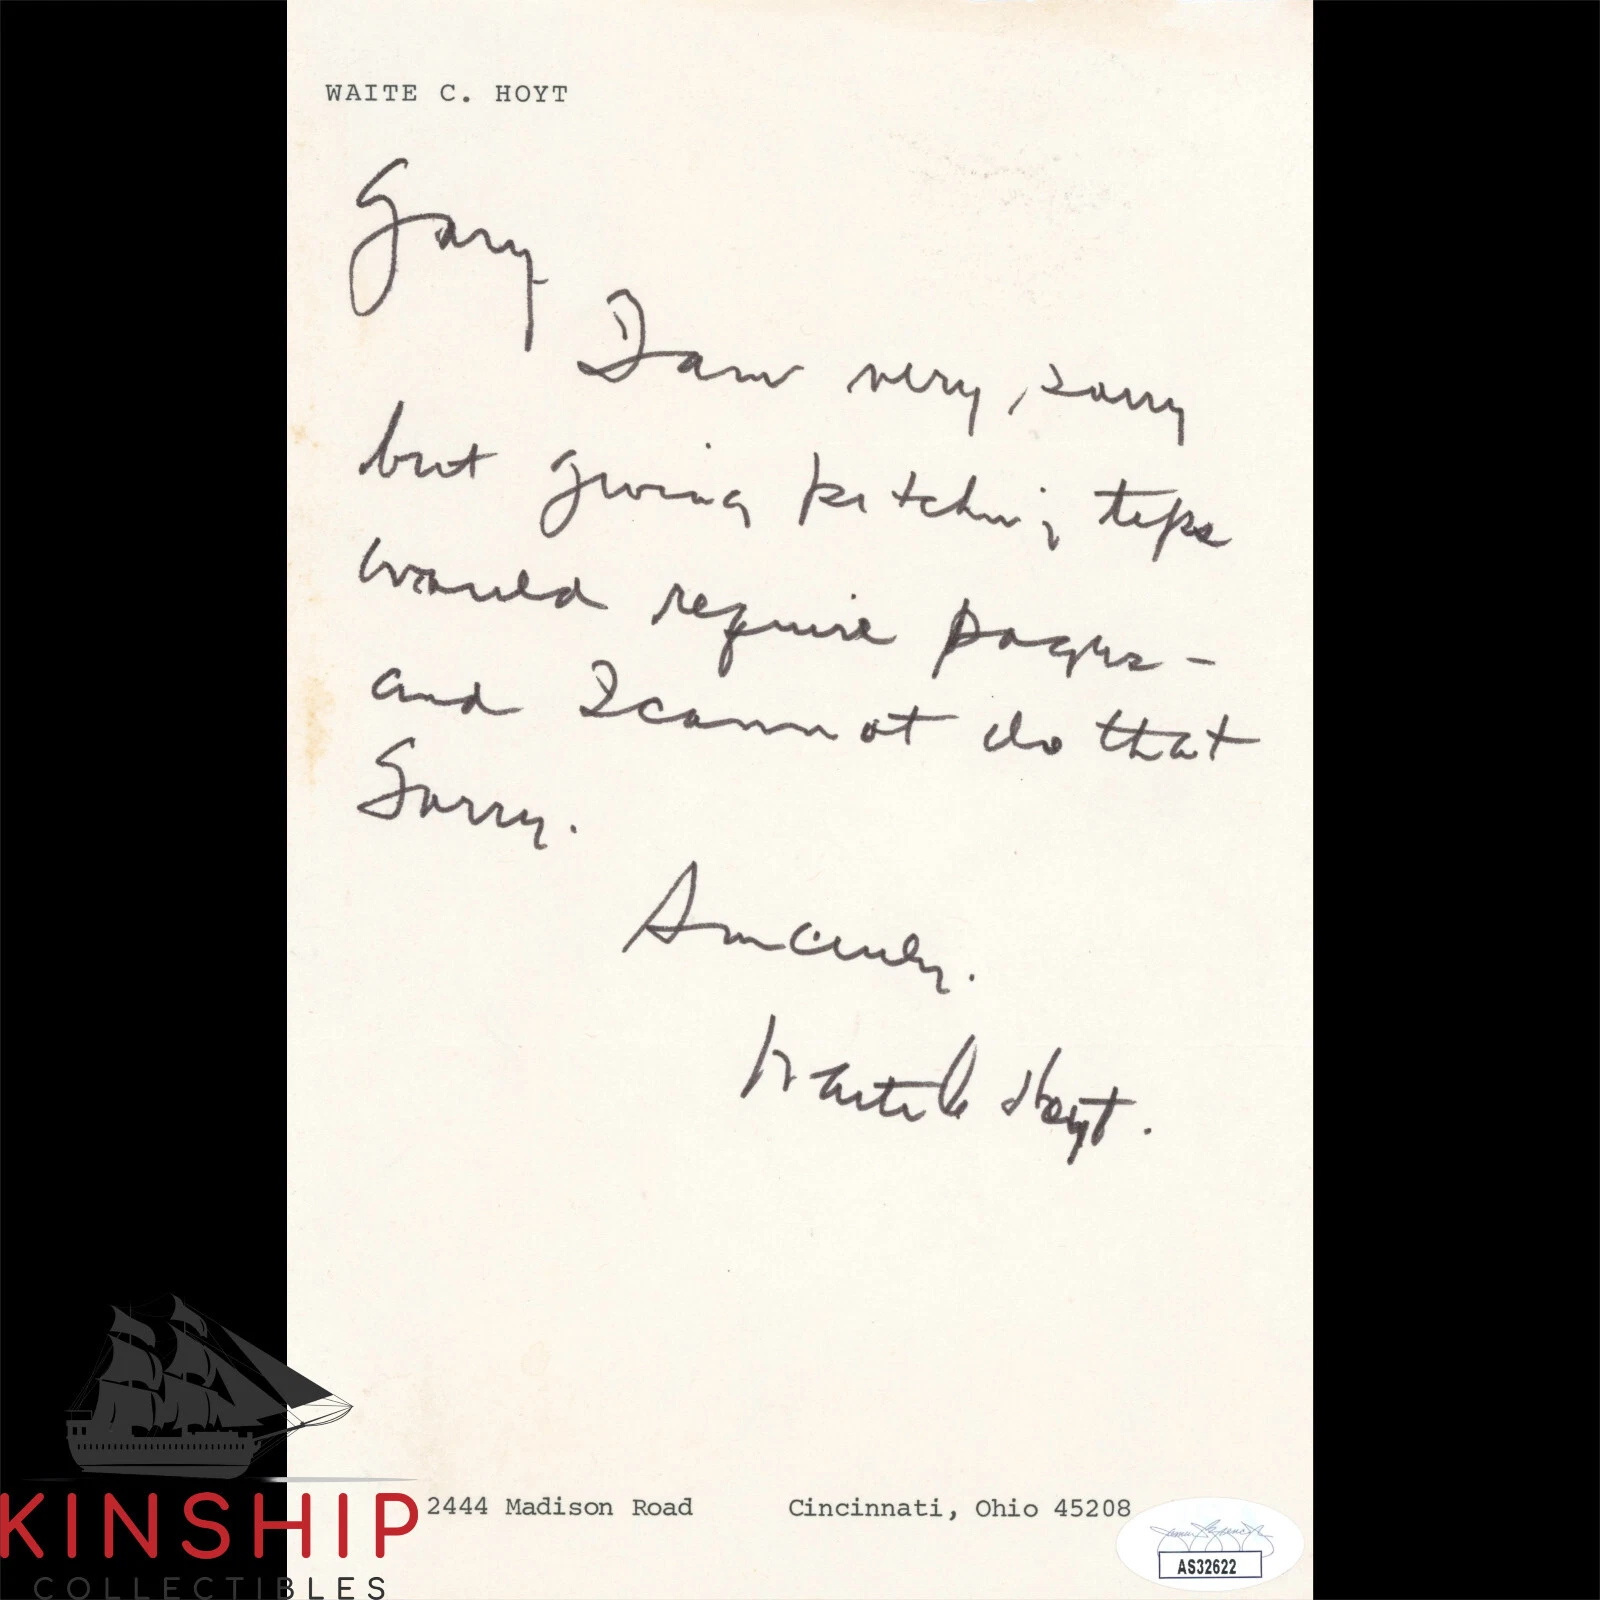 WAITE C. HOYT
Gary
I am very sorry
but giving pitching tips
would require pages -
and I cannot do that
Sorry.
Sincerely.
Waite Hoyt.
2444 Madison Road Cincinnati, Ohio 45208
KINSHIP
COLLECTIBLES
AS32622